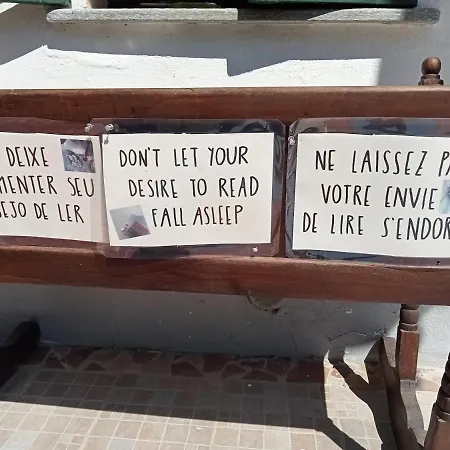 DEIXE
MENTER SEU
EJO DE LER
DON'T LET YOUR
DESIRE TO READ
FALL ASLEEP
NE LAISSEZ PA
VOTRE ENVIE
DE LIRE S'ENDOR